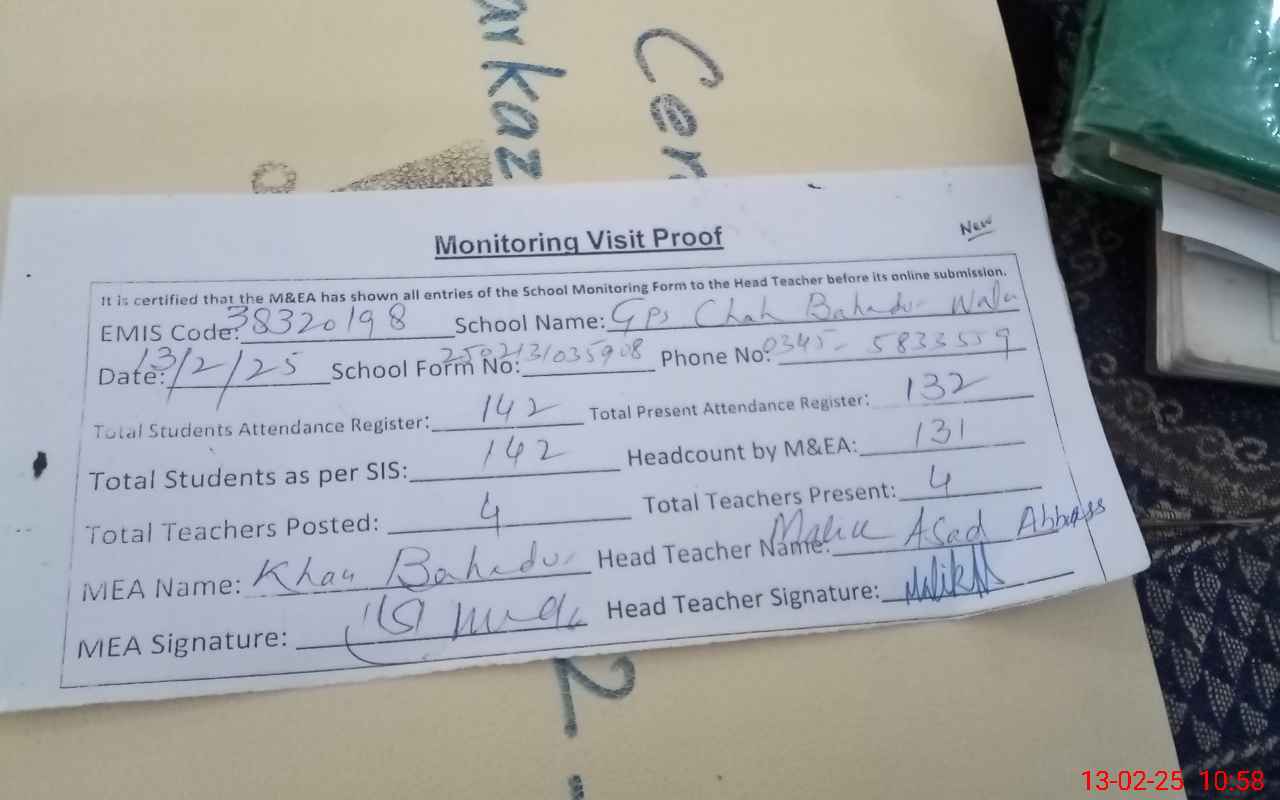 arkaz
Cen
New
Monitoring Visit Proof
It is certified that the M&EA has shown all entries of the School Monitoring Form to the Head Teacher before its online submission.
EMIS Code: 38320198 School Name: GPs Chah Bahadur Wala
Date: 13/2/25 School Form No: 2502131035908 Phone No: 0345-5833559
Total Students Attendance Register: 142 Total Present Attendance Register: 132
Total Students as per SIS: 142 Headcount by M&EA: 131
Total Teachers Posted: 4 Total Teachers Present: 4
MEA Name: Khan Bahadur Head Teacher Name: Malik Asad Abbass
MEA Signature: Head Teacher Signature: Malik
2
13-02-25 10:58